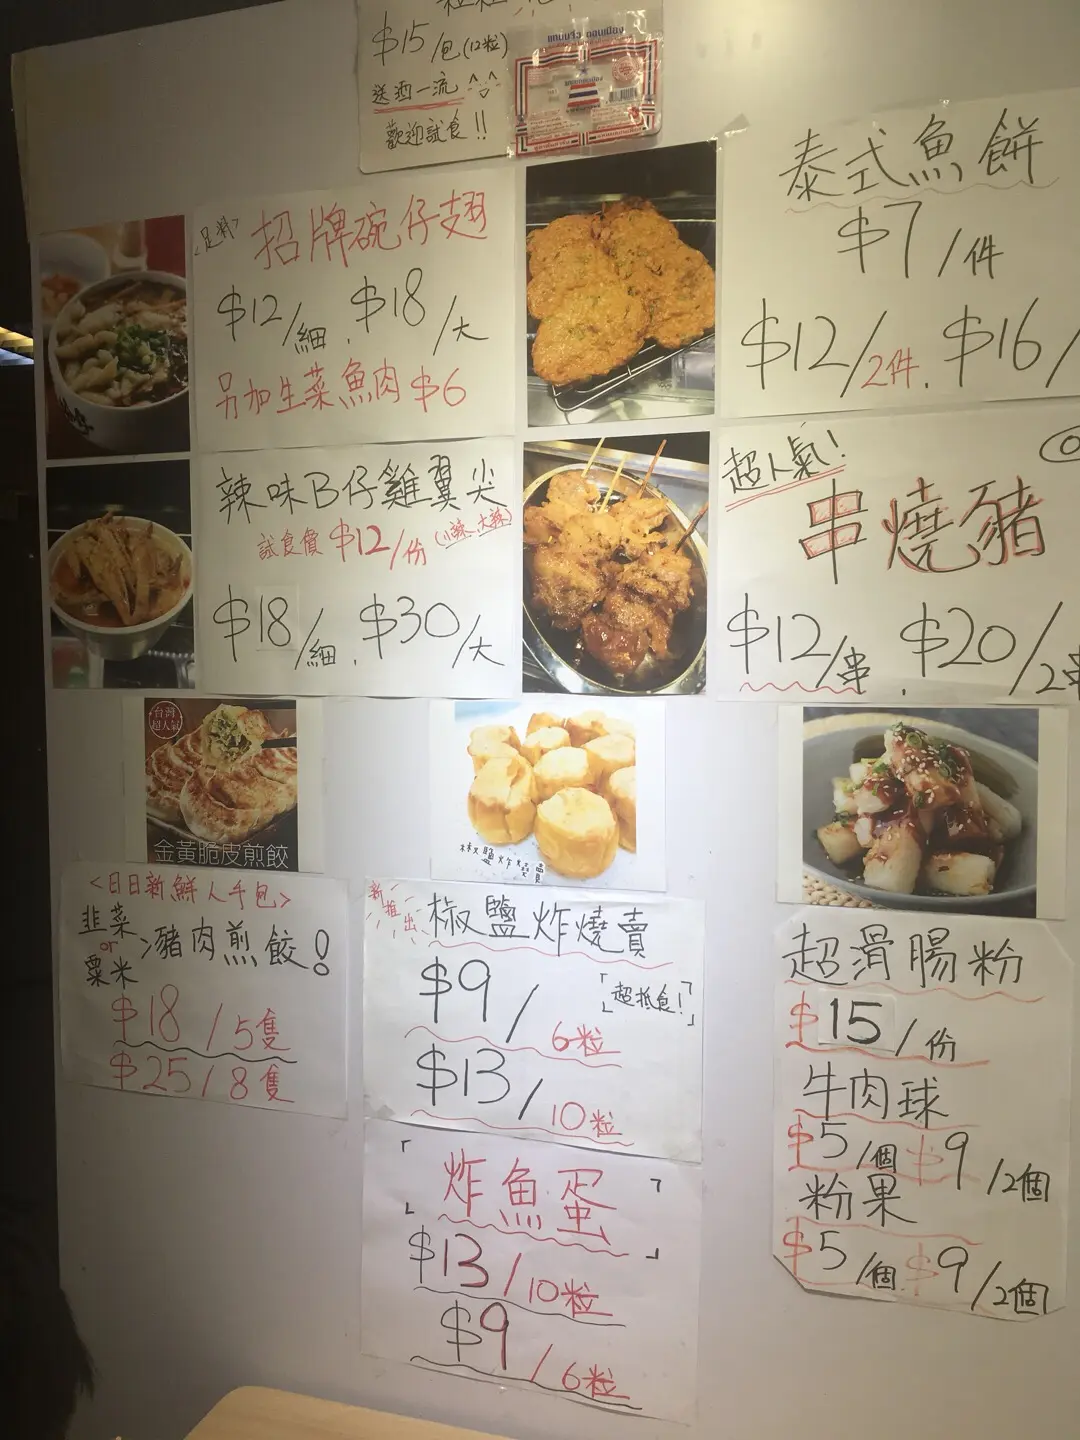 $15/包(12粒)
送酒一流^^
歡迎試食!!
แหนมจิ๋ว ดอนเมือง
泰式魚餅
$7/件
$12/2件. $16/
<足料>
招牌碗仔翅
$12/細. $18/大
另加生菜魚肉$6
辣味B仔雞翼尖
試食價$12/份(小辣、大辣)
$18/細. $30/大
超人氣!
串燒豬
$12/串. $20/2串
台灣
超人氣
金黃脆皮煎餃
<日日新鮮人手包>
韭菜
or
粟米
豬肉煎餃!
$18/5隻
$25/8隻
椒鹽炸燒賣
新推出
椒鹽炸燒賣
$9/6粒
「超抵食!」
$13/10粒
「炸魚蛋」
$13/10粒
$9/6粒
超滑腸粉
$15/份
牛肉球
$5/個 $9/2個
粉果
$5/個 $9/2個